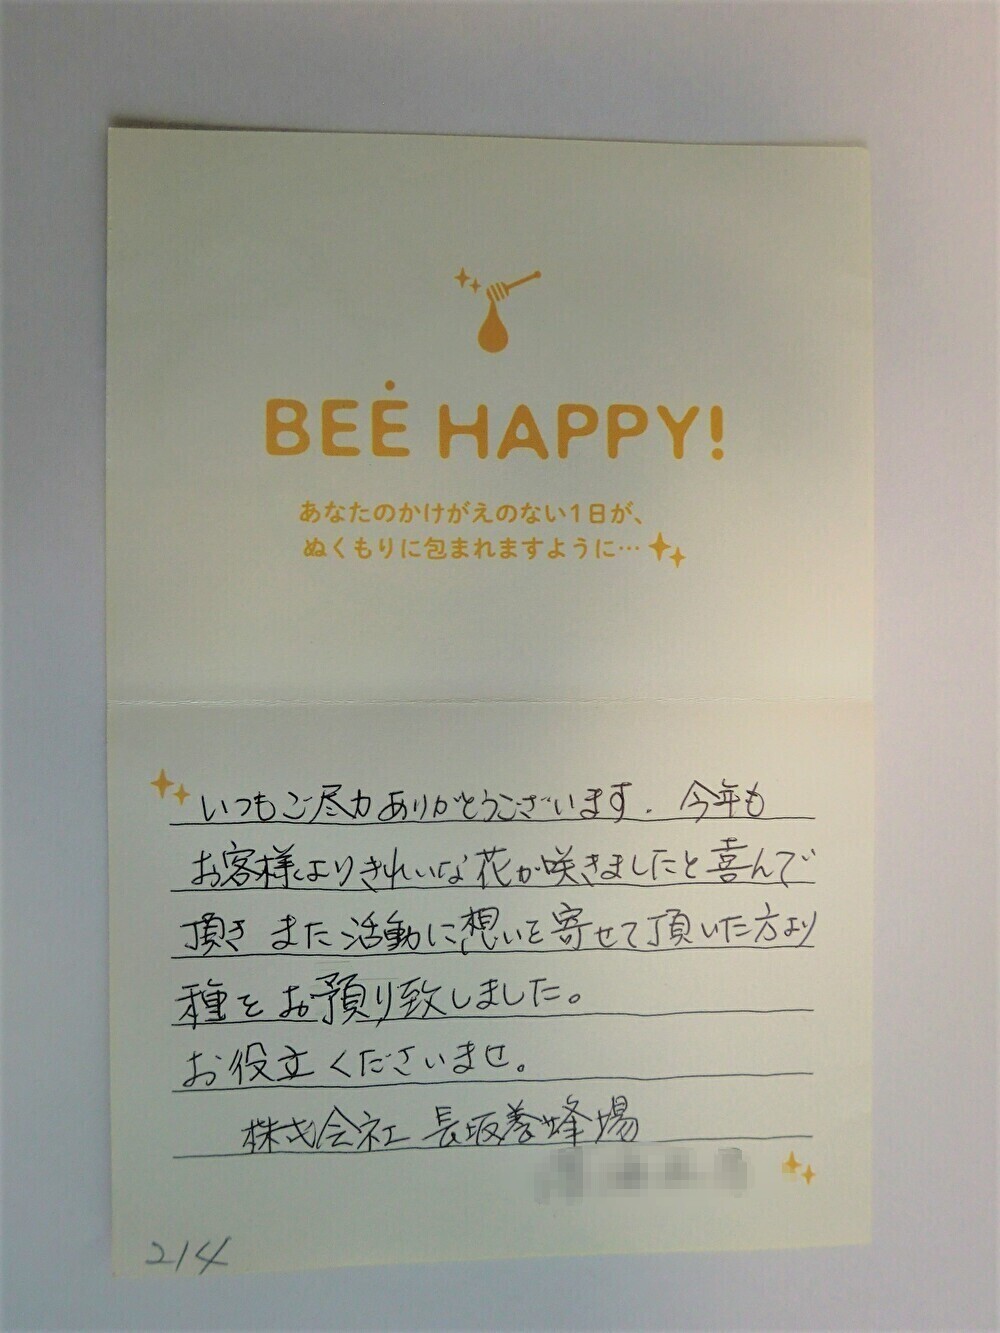 BEE HAPPY!
あなたのかけがえのない1日が、
ぬくもりに包まれますように…
いつもご尽力ありがとうございます. 今年も
お客様よりきれいな花が咲きましたと喜んで
頂き また 活動に想いを寄せて頂いた方より
種をお預り致しました。
お役立くださいませ。
株式会社 長坂養蜂場
214